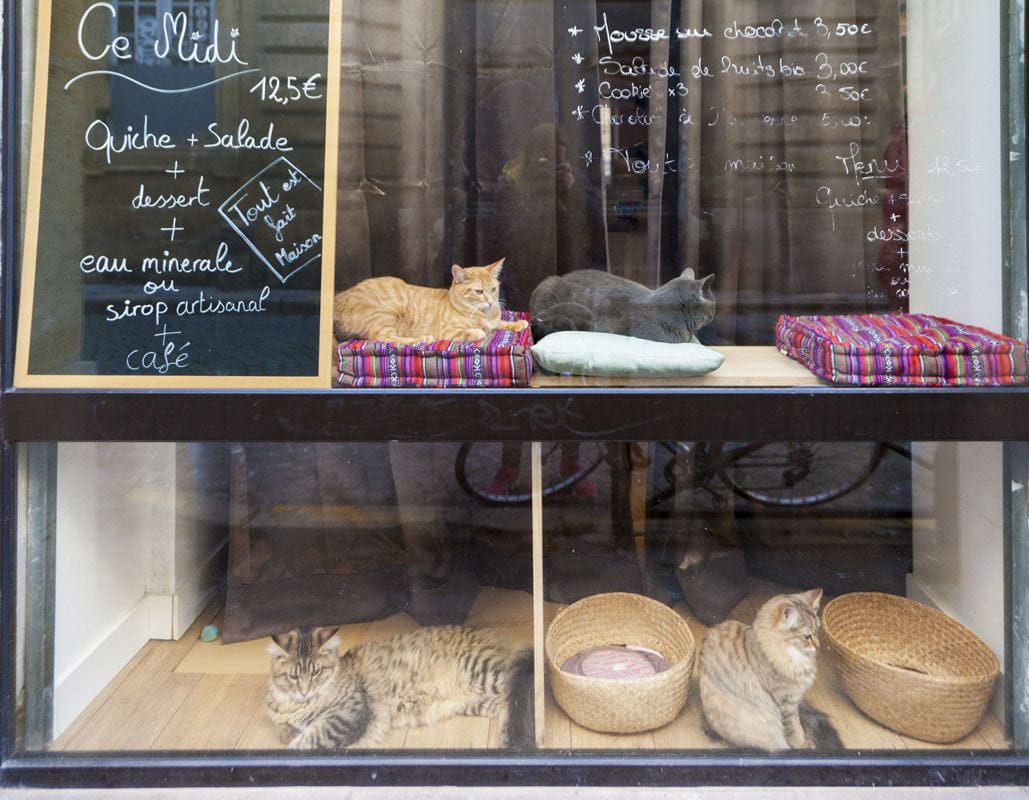 Ce Midi
12,5€
Quiche + Salade
+
dessert
+
eau minerale
ou
sirop artisanal
+
café
Tout est
fait
Maison
* Mousse au chocolat 3,50€
* Salade de fruits bio 3,00€
* Cookie x3 3,50€
*
Tout maison
Menu 12,50€
Quiche +
+
dessert
+